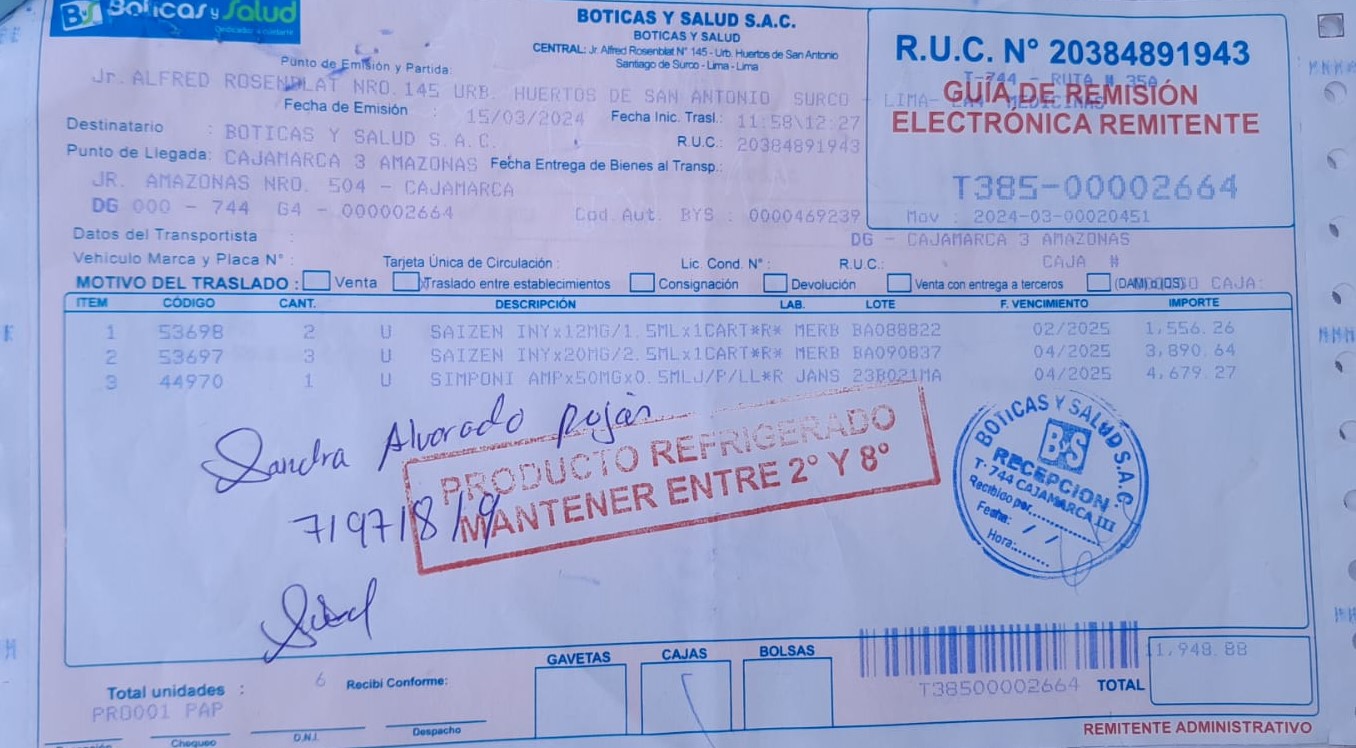 BS Boticas y Salud
Dedicados a cuidarte
BOTICAS Y SALUD S.A.C.
BOTICAS Y SALUD
CENTRAL: Jr. Alfred Rosenblat N° 145 - Urb. Huertos de San Antonio
Santiago de Surco - Lima - Lima
R.U.C. N° 20384891943
T-744 - RUTA # 35A
GUÍA DE REMISIÓN
MEDICINAS
ELECTRÓNICA REMITENTE
T385-00002664
Mov : 2024-03-00020451
Punto de Emisión y Partida:
Jr. ALFRED ROSENBLAT NRO.145 URB. HUERTOS DE SAN ANTONIO SURCO - LIMA-
Fecha de Emisión : 15/03/2024 Fecha Inic. Trasl.: 11:58\12:27
Destinatario : BOTICAS Y SALUD S.A.C. R.U.C.: 20384891943
Punto de Llegada: CAJAMARCA 3 AMAZONAS Fecha Entrega de Bienes al Transp.:
JR. AMAZONAS NRO. 504 - CAJAMARCA
DG 000 - 744 G4 - 000002664 Cod. Aut. BYS : 0000469239
Datos del Transportista : DG - CAJAMARCA 3 AMAZONAS
Vehículo Marca y Placa N° : Tarjeta Única de Circulación : Lic. Cond. N° : R.U.C.: CAJA #
MOTIVO DEL TRASLADO : Venta Traslado entre establecimientos Consignación Devolución Venta con entrega a terceros CAJA:
ITEM CÓDIGO CANT. DESCRIPCIÓN LAB. LOTE F. VENCIMIENTO IMPORTE
1 53698 2 U SAIZEN INYx12MG/1.5MLx1CART*R* MERB BA088822 02/2025 1,556.26
2 53697 3 U SAIZEN INYx20MG/2.5MLx1CART*R* MERB BA090837 04/2025 3,890.64
3 44970 1 U SIMPONI AMPx50MGx0.5MLJ/P/LL*R JANS 23B021MA 04/2025 4,679.27
Sandra Alvarado Rojas
71971819
PRODUCTO REFRIGERADO
MANTENER ENTRE 2° Y 8°
BOTICAS Y SALUD S.A.C.
BS
RECEPCION
T-744 CAJAMARCA III
Recibido por:
Fecha: / /
Hora:
GAVETAS CAJAS BOLSAS
11,948.88
T38500002664 TOTAL
Total unidades : 6 Recibi Conforme:
PRD001 PAP
Chequeo D.N.I. Despacho
REMITENTE ADMINISTRATIVO